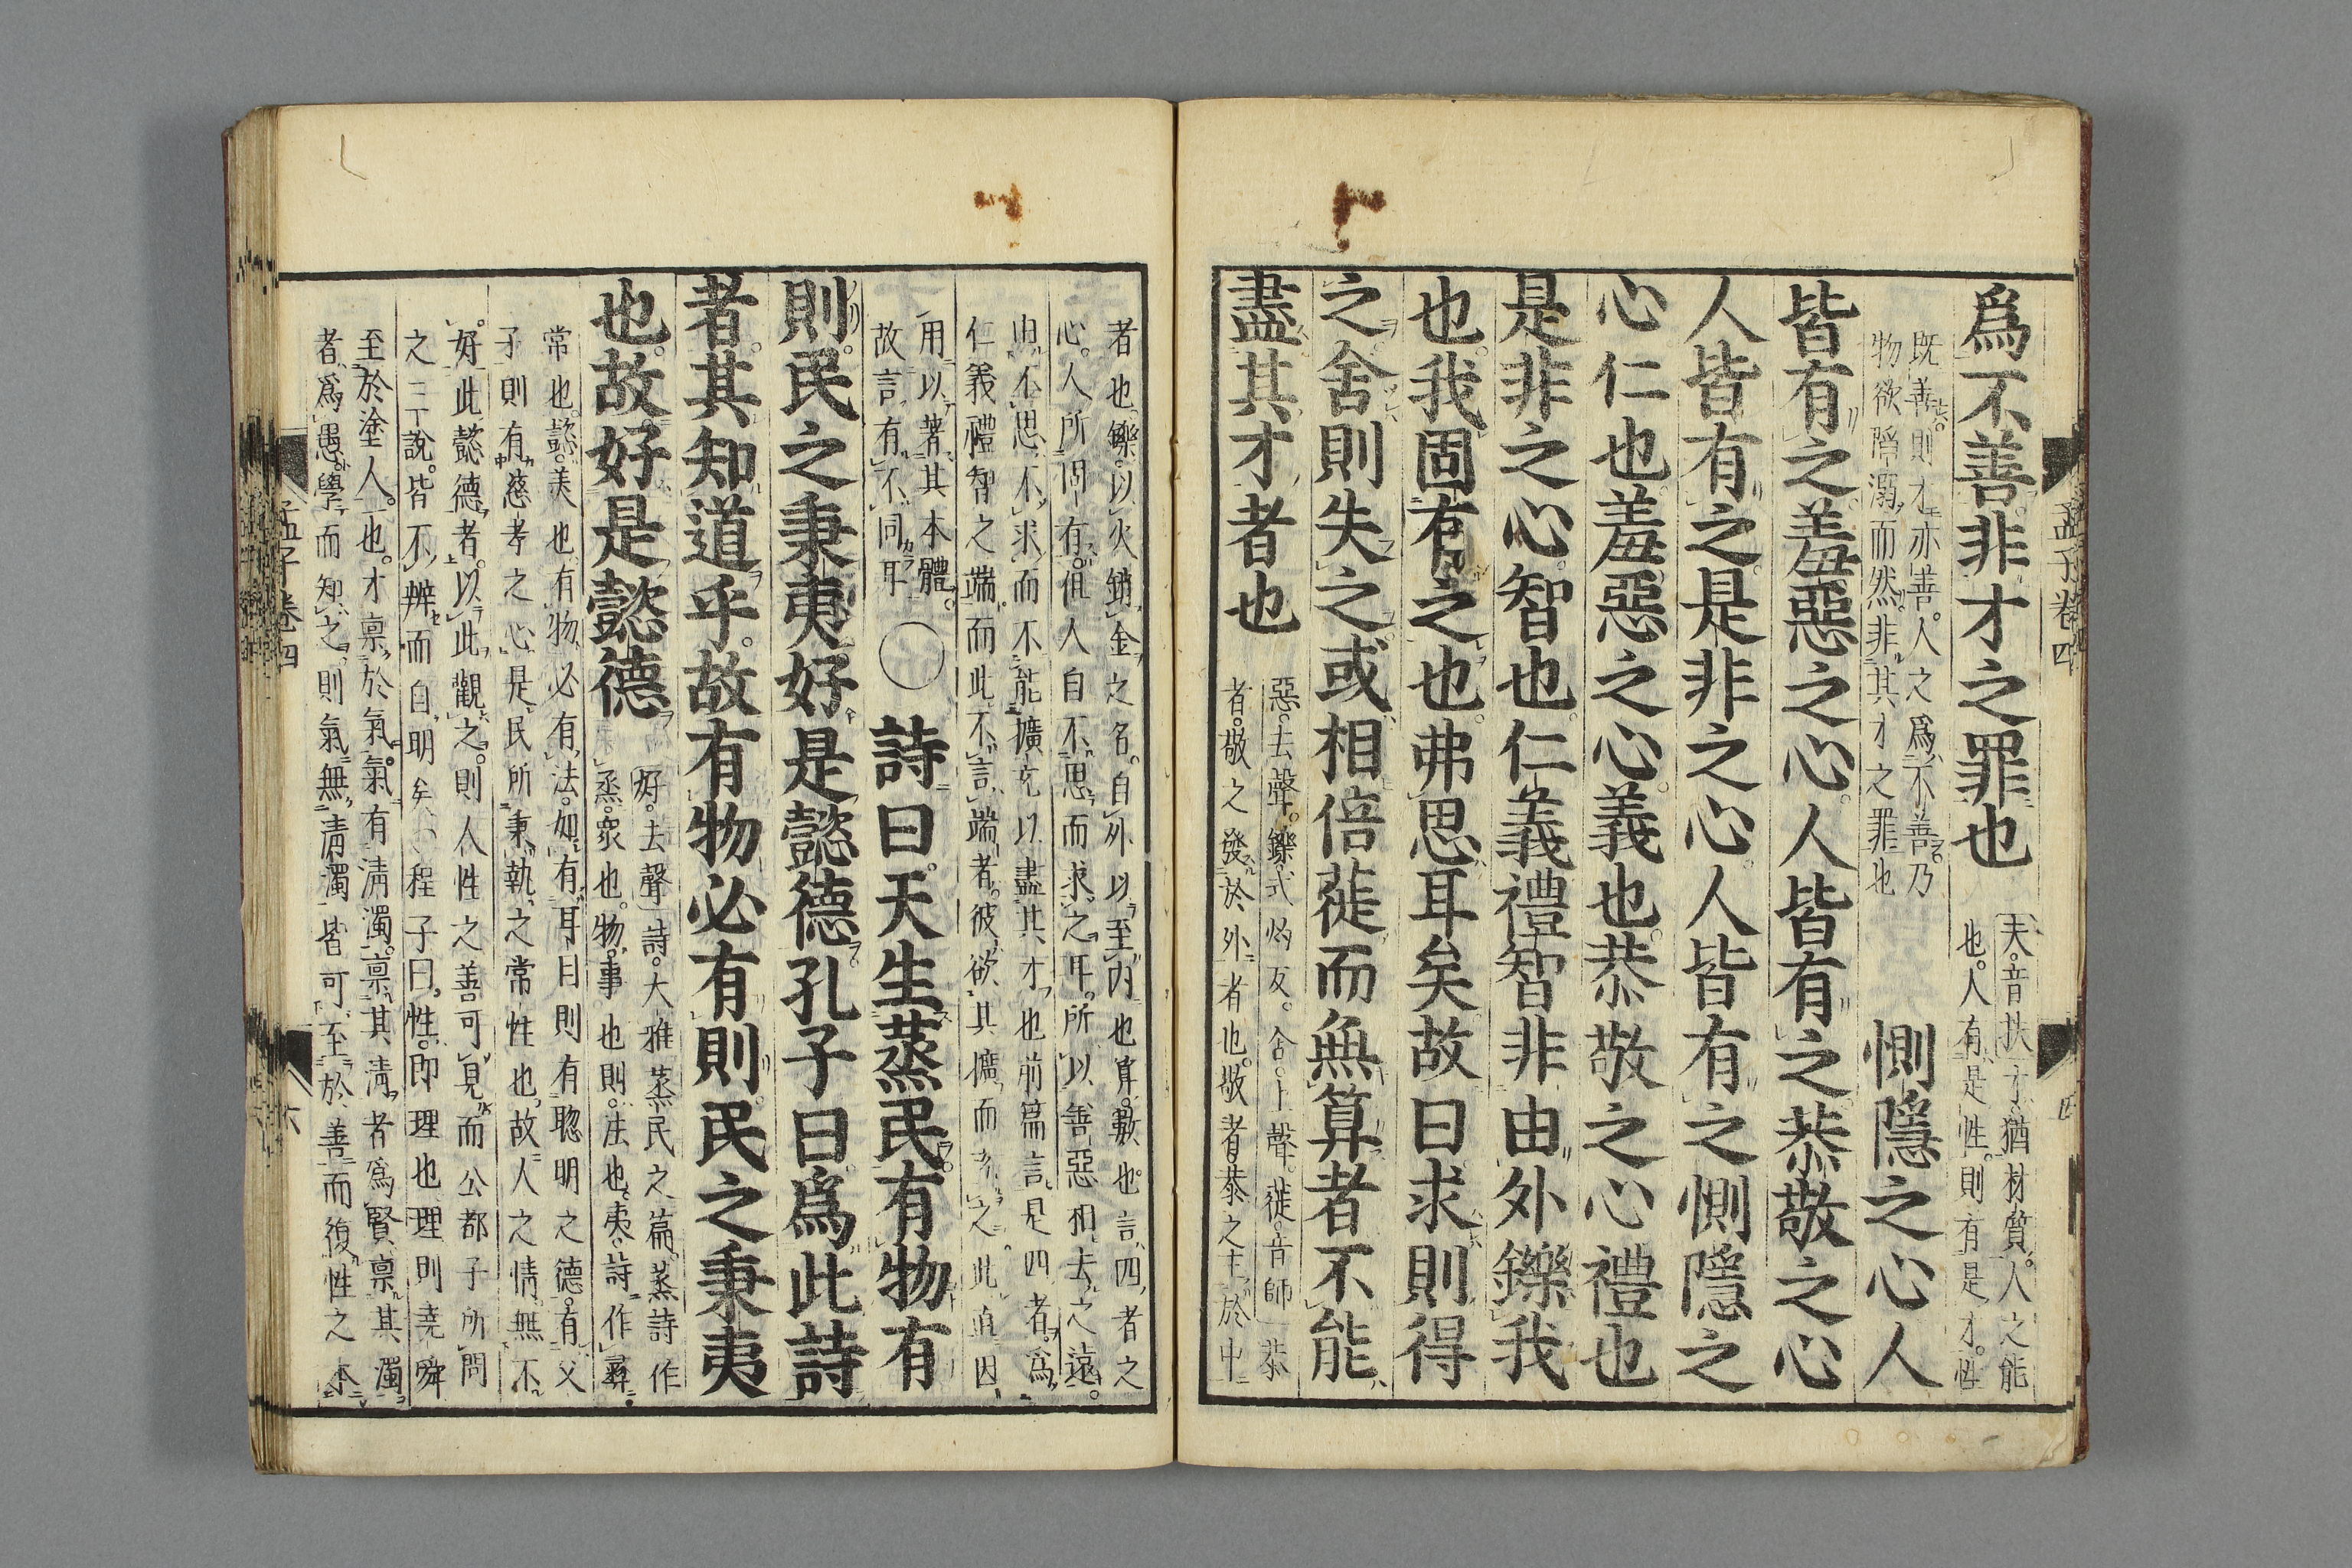 爲不善非才之罪也
夫音扶才猶材質人之能
也人有是性則有是才性
既善則才亦善人之爲不善乃
物欲陷溺而然非其才之罪也
惻隱之心人
皆有之羞惡之心人皆有之恭敬之心
人皆有之是非之心人皆有之惻隱之
心仁也羞惡之心義也恭敬之心禮也
是非之心智也仁義禮智非由外鑠我
也我固有之也弗思耳矣故曰求則得
之舍則失之或相倍蓰而無算者不能
盡其才者也
惡去聲鑠式灼反舍上聲蓰音師恭
者敬之發於外者也敬者恭之主於中
孟子卷四
四
者也鑠以火銷金之名自外以至内也算數也言四者之
心人所固有但人自不思而求之耳所以善惡相去之遠
由不思不求而不能擴充以盡其才也前篇言是四者爲
仁義禮智之端而此不言端者彼欲其擴而充之此直因
用以著其本體
故言有不同耳
○詩曰天生蒸民有物有
則民之秉夷好是懿德孔子曰爲此詩
者其知道乎故有物必有則民之秉夷
也故好是懿德
好去聲詩大雅蒸民之篇蒸詩作
烝衆也物事也則法也夷詩作彞
常也懿美也有物必有法如有耳目則有聰明之德有父
子則有慈孝之心是民所秉執之常性也故人之情無不
好此懿德者以此觀之則人性之善可見而公都子所問
之三說皆不辨而自明矣○程子曰性即理也理則堯舜
至於塗人一也才稟於氣氣有淸濁稟其淸者爲賢稟其濁
者爲愚學而知之則氣無淸濁皆可至於善而復性之本
孟子卷四
六